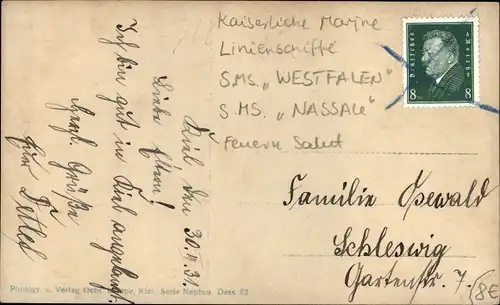 Kaiserliche Marine
Linienschiffe
S.M.S. „WESTFALEN"
S.MS. „NASSAU"
feuern Salut
Deutsches Reich
8 8
Kiel den 30.
Liebe Eltern!
Ich bin gut in Kiel angelangt.
Grüße
Euer Detlef
Familie Osewald
Schleswig
Gartenstr. 7.
8€
Photogr. u. Verlag Gebr. Kiel. Serie Nephu Dess 52